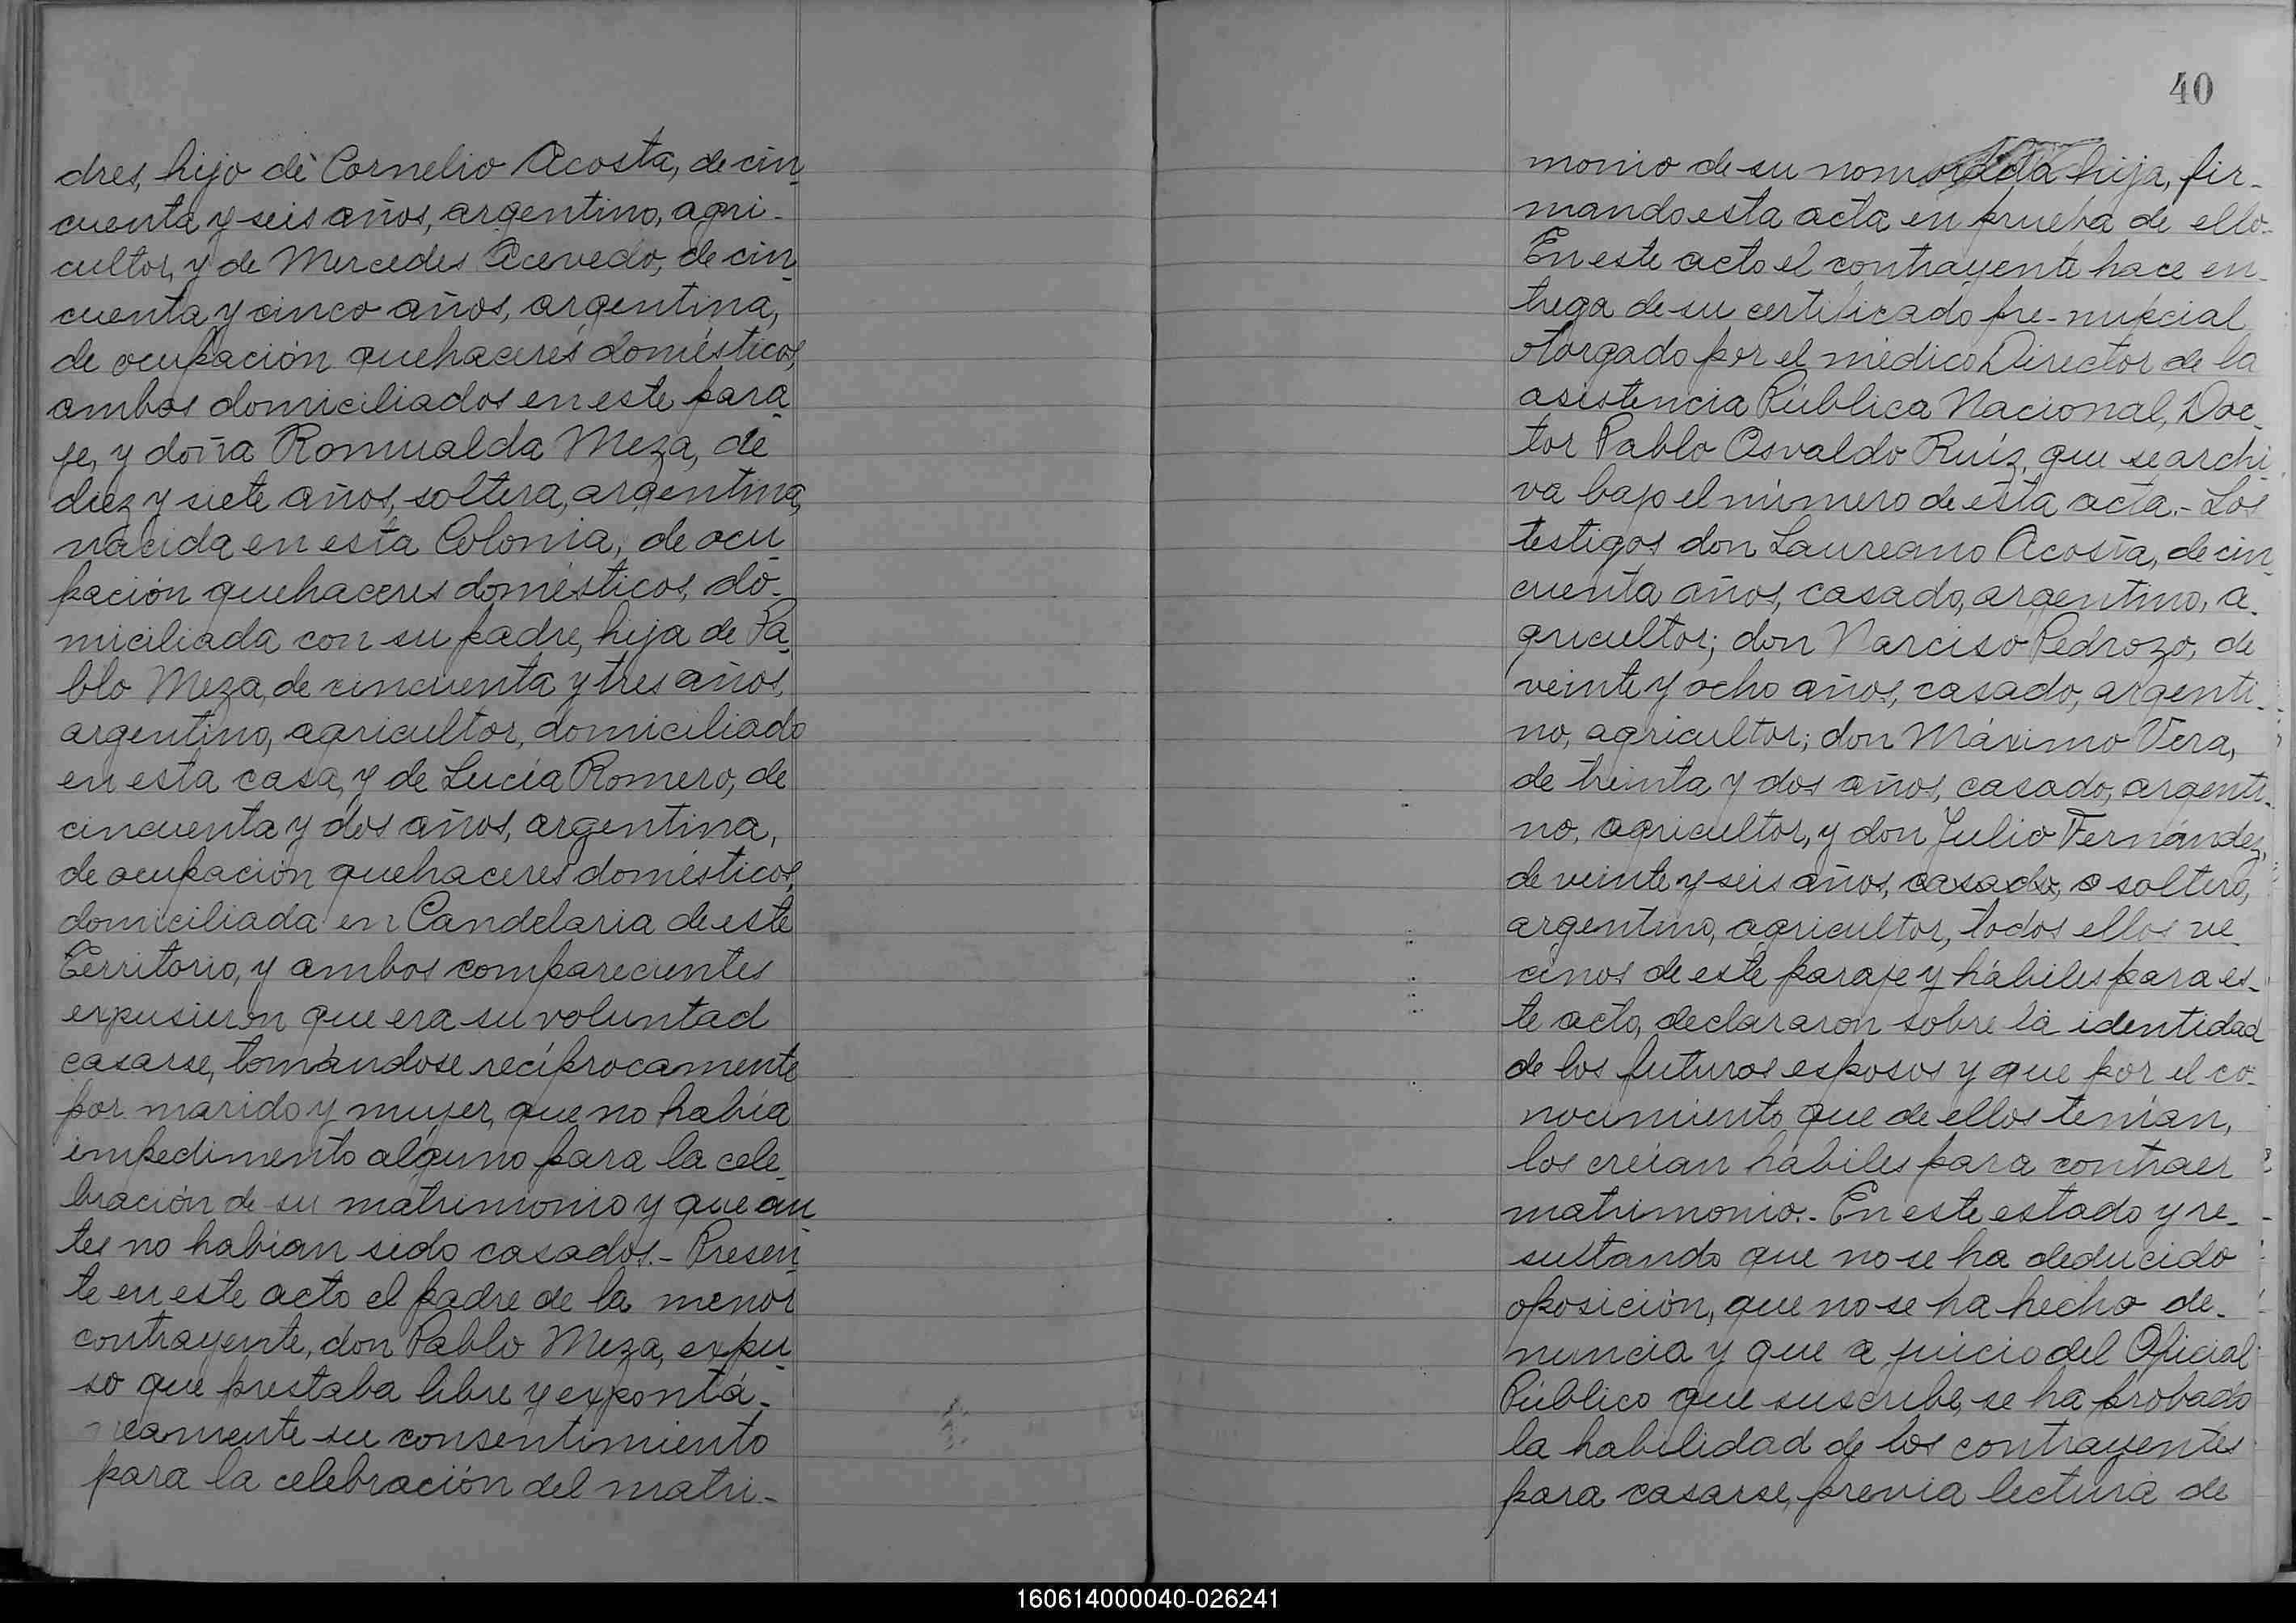 dres, hijo de Cornelio Acosta, de cin-
cuenta y seis años, argentino, agri-
cultor, y de Mercedes Acevedo, de cin-
cuenta y cinco años, argentina,
de ocupación quehaceres domésticos,
ambos domiciliados en este para-
je, y doña Romualda Meza, de
diez y siete años, soltera, argentina,
nacida en esta Colonia, de ocu-
pación quehaceres domésticos, do-
miciliada con su padre, hija de Pa-
blo Meza, de cincuenta y tres años,
argentino, agricultor, domiciliado
en esta casa, y de Lucía Romero, de
cincuenta y dos años, argentina,
de ocupación quehaceres domésticos,
domiciliada en Candelaria de este
Territorio, y ambos comparecientes
expusieron que era su voluntad
casarse, tomándose recíprocamente
por marido y mujer, que no había
impedimento alguno para la cele-
bración de su matrimonio y que an-
tes no habían sido casados.- Presen-
te en este acto el padre de la menor
contrayente, don Pablo Meza, expu-
so que prestaba libre y expontá-
neamente su consentimiento
para la celebración del matri-
40
monio de su nombrada hija, fir-
mando esta acta en prueba de ello.-
En este acto el contrayente hace en-
trega de su certificado pre-nupcial
otorgado por el médico Director de la
asistencia Pública Nacional, Doc-
tor Pablo Osvaldo Ruíz, que se archi-
va bajo el número de esta acta.- Los
testigos don Laureano Acosta, de cin-
cuenta años, casado, argentino, a-
gricultor; don Narciso Pedrozo, de
veinte y ocho años, casado, argenti-
no, agricultor; don Máximo Vera,
de treinta y dos años, casado, argenti-
no, agricultor, y don Julio Fernández,
de veinte y seis años, casado, o soltero,
argentino, agricultor, todos ellos ve-
cinos de este paraje y hábiles para es-
te acto, declararon sobre la identidad
de los futuros esposos y que por el co-
nocimiento que de ellos tenían,
los creían hábiles para contraer
matrimonio.- En este estado y re-
sultando que no se ha deducido
oposición, que no se ha hecho de-
nuncia y que a juicio del Oficial
Público que suscribe, se ha probado
la habilidad de los contrayentes
para casarse, previa lectura de
160614000040-026241